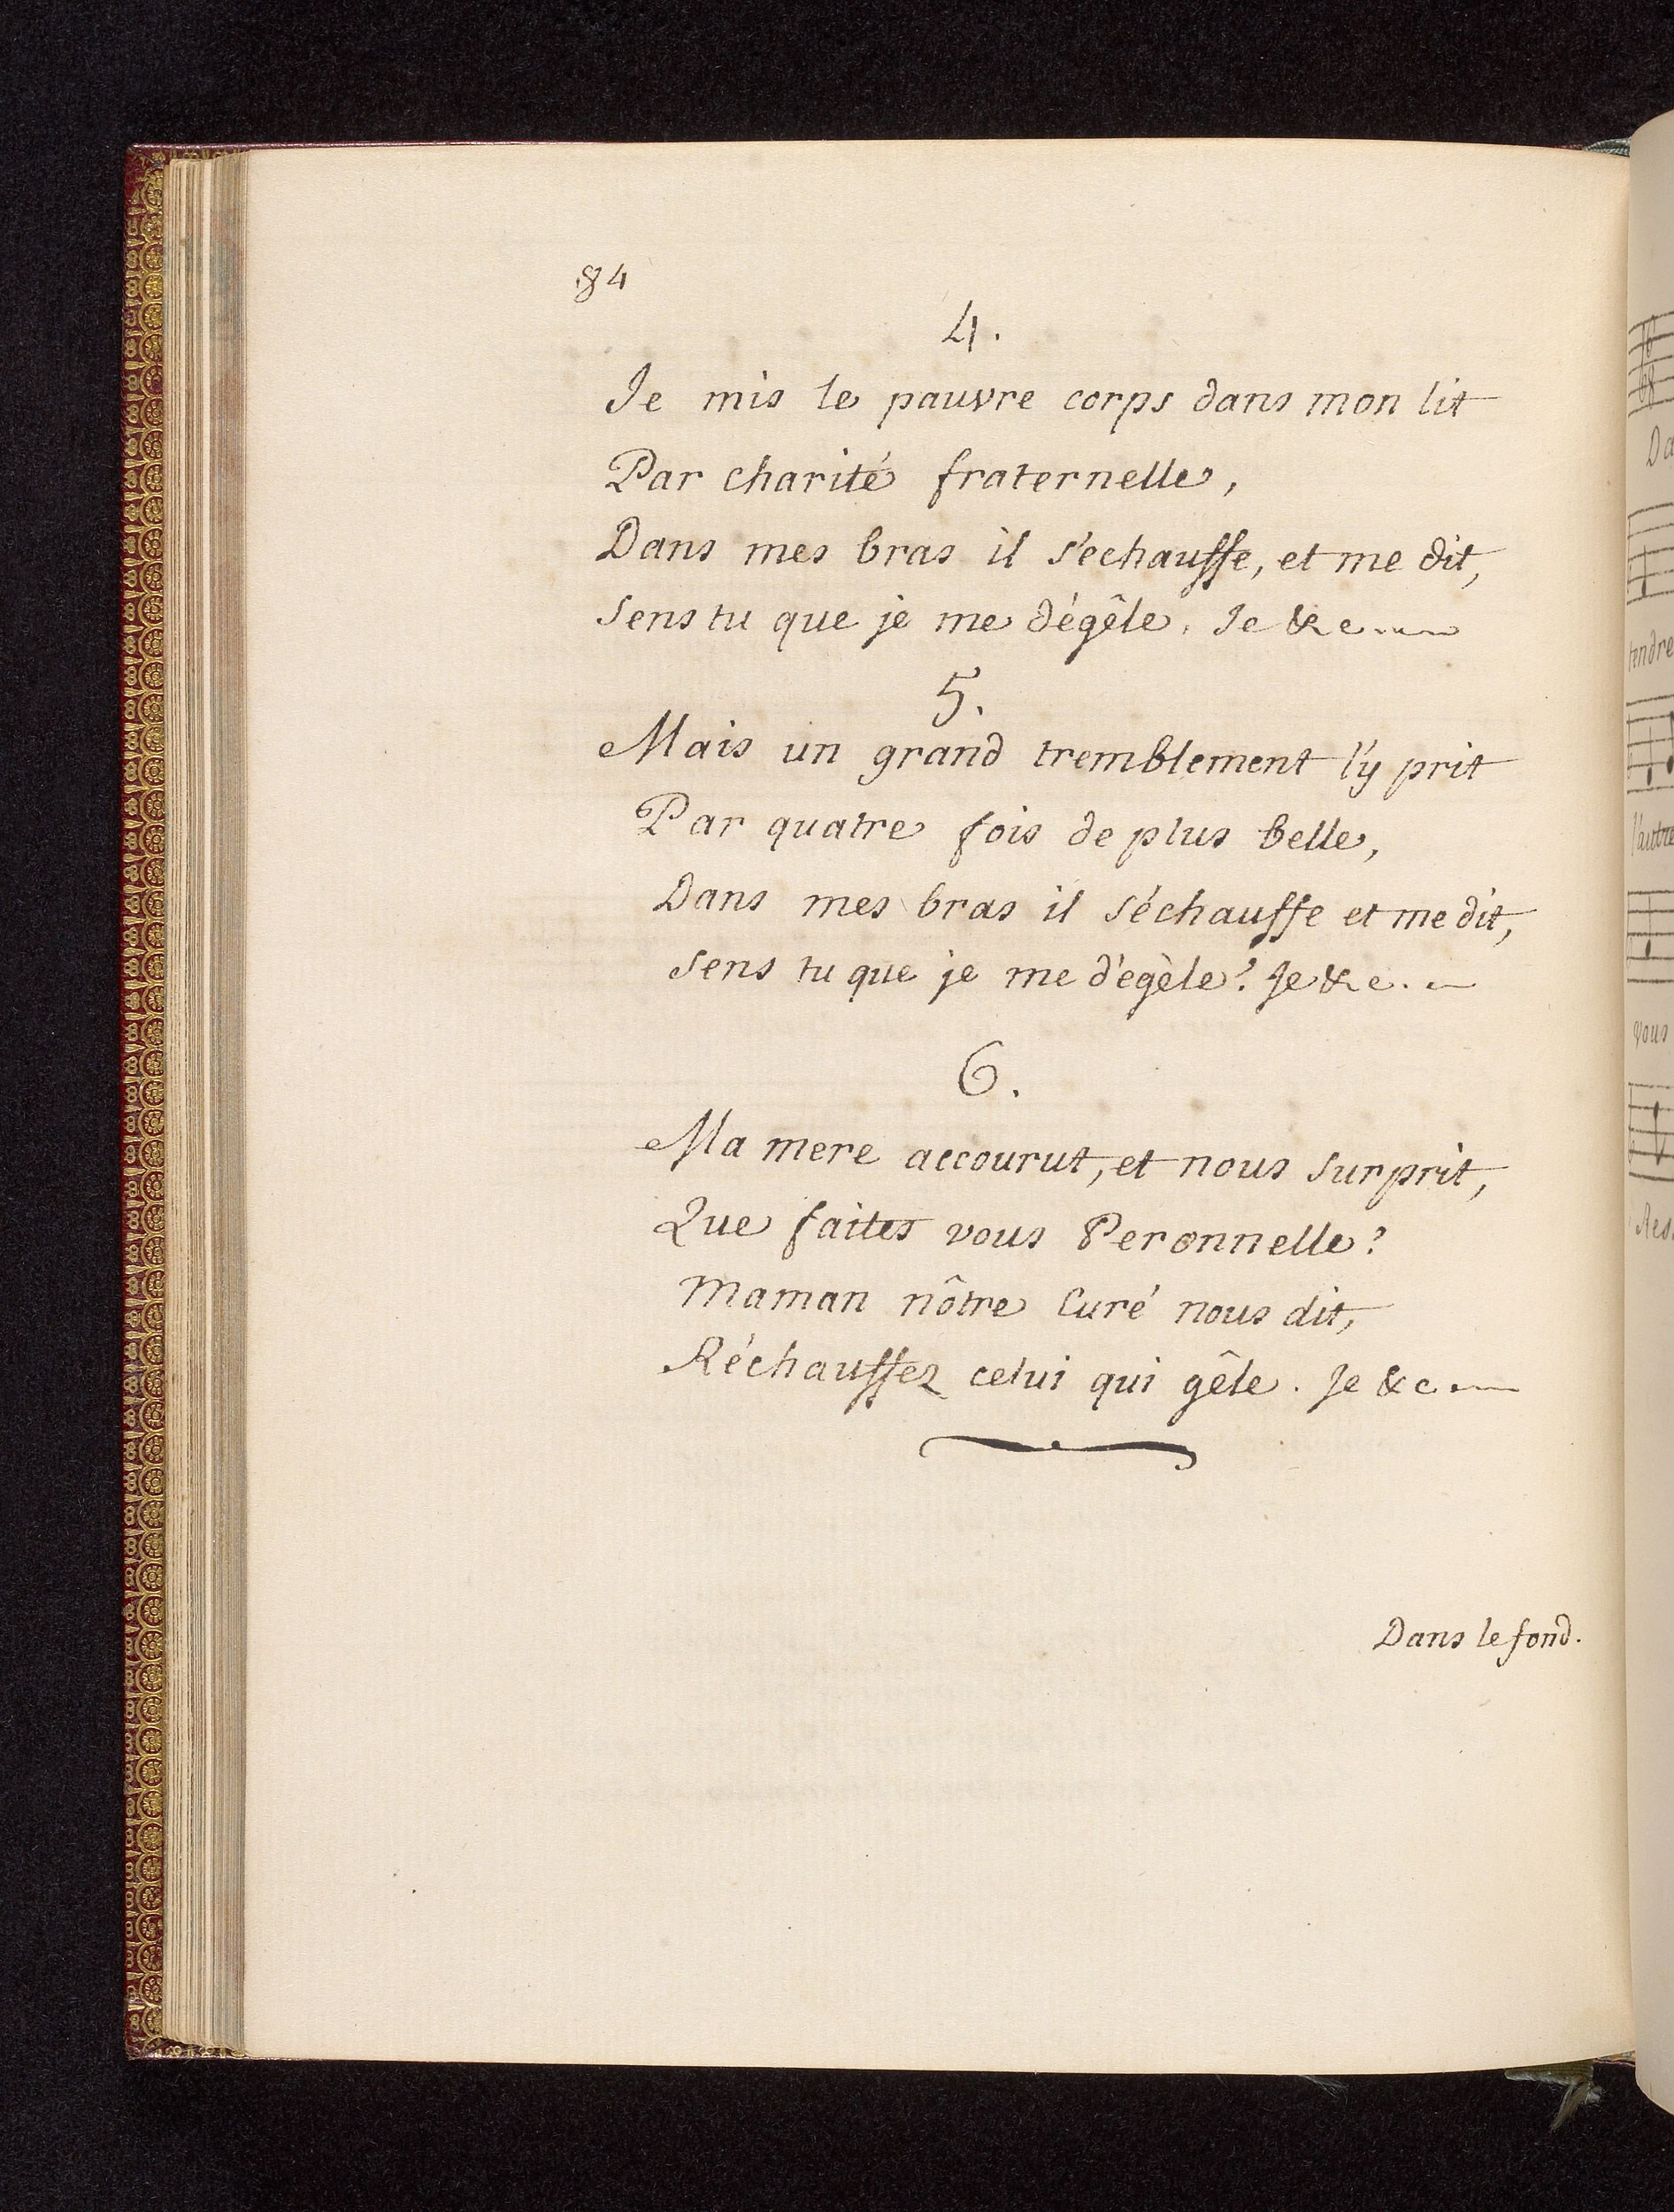 84
4.
Je mis le pauvre corps dans mon lit
Par charité fraternelle,
Dans mes bras il s'echauffe, et me dit,
Sens tu que je me dégêle. Je &c
5.
Mais un grand tremblement l'y prit
Par quatre fois de plus belle,
Dans mes bras il s'échauffe et me dit,
Sens tu que je me dégèle? Je &c.
6.
Ma mere accourut, et nous surprit,
Que faites vous Peronnelle?
Maman nôtre Curé nous dit,
Réchauffez celui qui gêle. Je &c
Dans le fond.
Da
tendre
l'autre
vous
Res